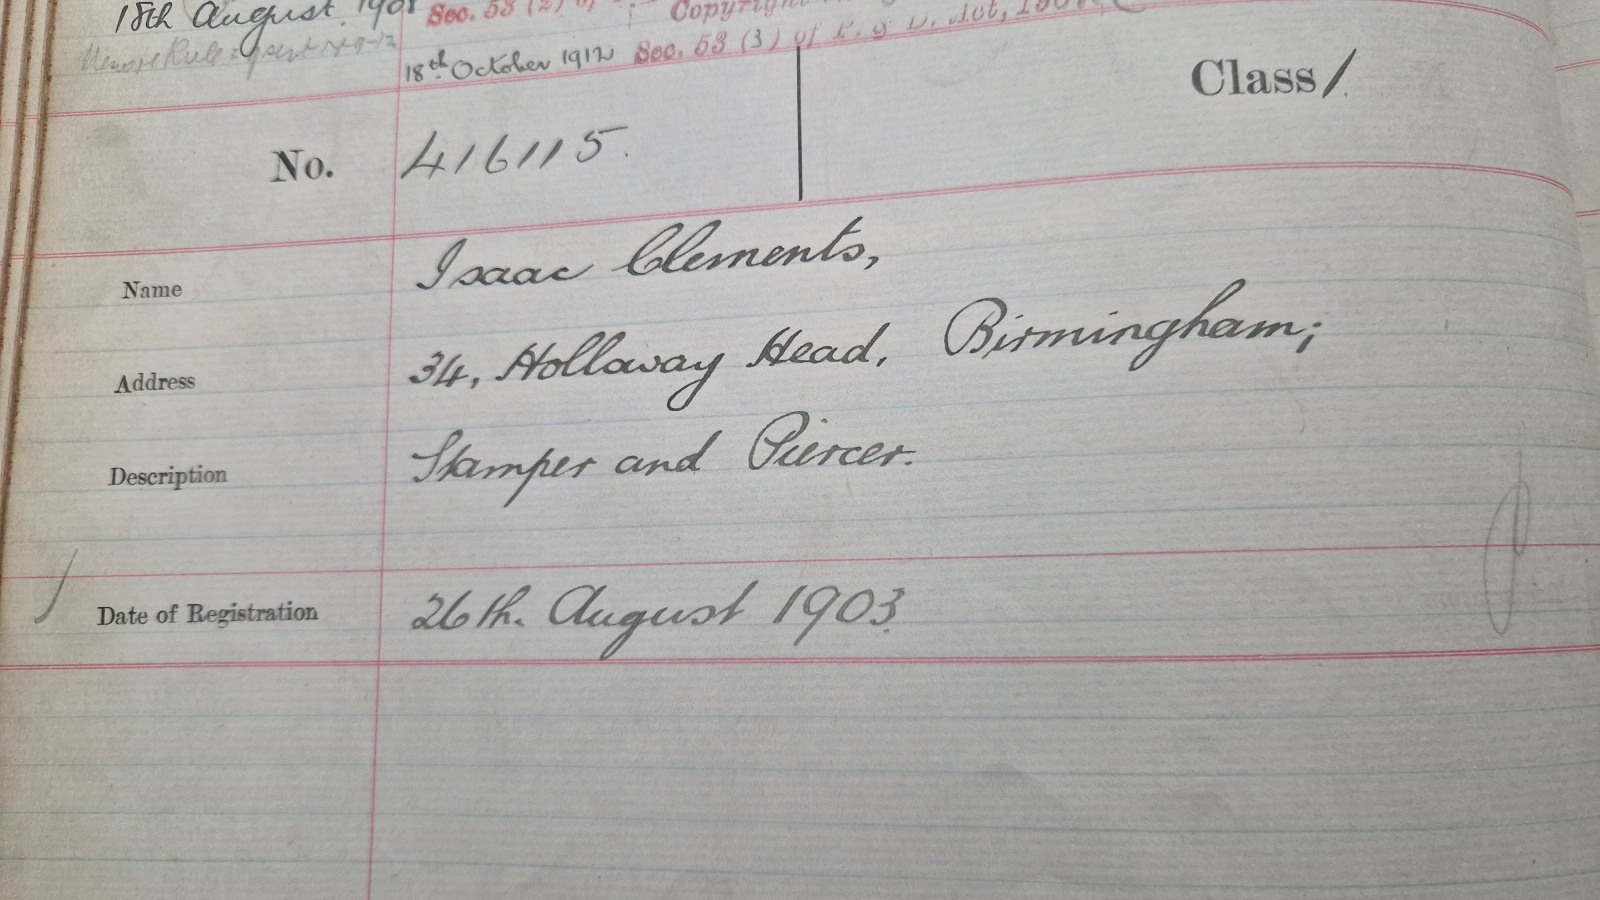 18th August. 1908 Sec. 53 (2) of Copyright
18th October 1912 Sec. 53 (3) of P. & D. Act, 1907
Class 1.
No. 416115.
Name Isaac Clements,
Address 34, Hollaway Head, Birmingham;
Description Stamper and Piercer.
Date of Registration 26th. August 1903.